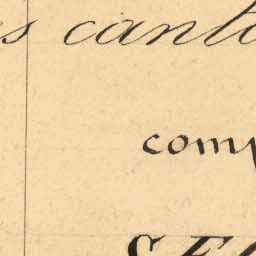 s canto
comp
SE